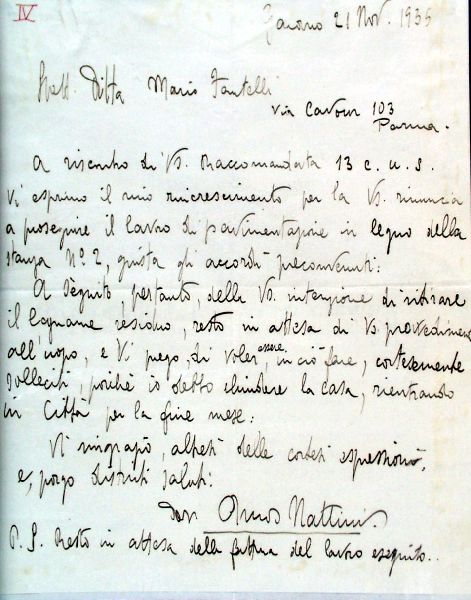 IV
Gaiano 21 Nov. 1935
Spett. Ditta Mario Fantelli
via Cavour 103
Parma.
A riscontro di Vs. Raccomandata 13 c.
Vi esprimo il mio rincrescimento per la Vs. rinuncia
a proseguire il lavoro di pavimentazione in legno della
stanza N° 2, giusta gli accordi preconvenuti:
A seguito, pertanto, della Vs. intenzione di ritirare
il legname residuo, resto in attesa di Vs. provvedimenti
all'uopo, e Vi prego, di voler essere, in ciò fare, cortesemente
solleciti, poichè io debbo chiudere la casa, rientrando
in Città per la fine mese.
Vi ringrazio, altresì delle cortesi espressioni,
e, porgo distinti saluti.
Amos Nattini.
P. S. Resto in attesa della fattura del lavoro eseguito..